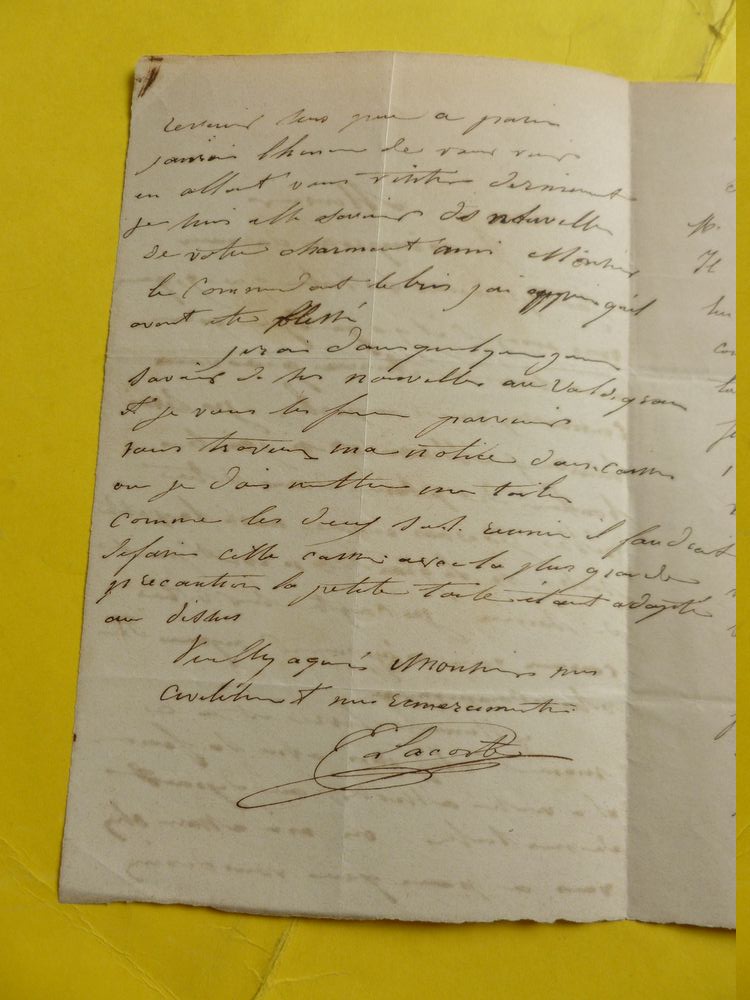 revenir sous peu a paris
j'aurais l'honneur de vous voir
en allant vous visiter dernierement
je suis allé savoir des nouvelles
de votre charmant ami Monsieur
le Commandant j'ai appris qu'il
avait été blessé
j'irai dans quelques jours
savoir de ses nouvelles au Val de grace
et je vous les ferai parvenir
vous trouverez ma notice dans caisse
ou je dois mettre ma toile
comme les deux sont reunir il faudrait
defaire cette caisse avec la plus grande
precaution la petite toile étant adapté
au dessus
Veuillez agréer Monsieur mes
civilités et mes remerciments
E Lacoste
M.